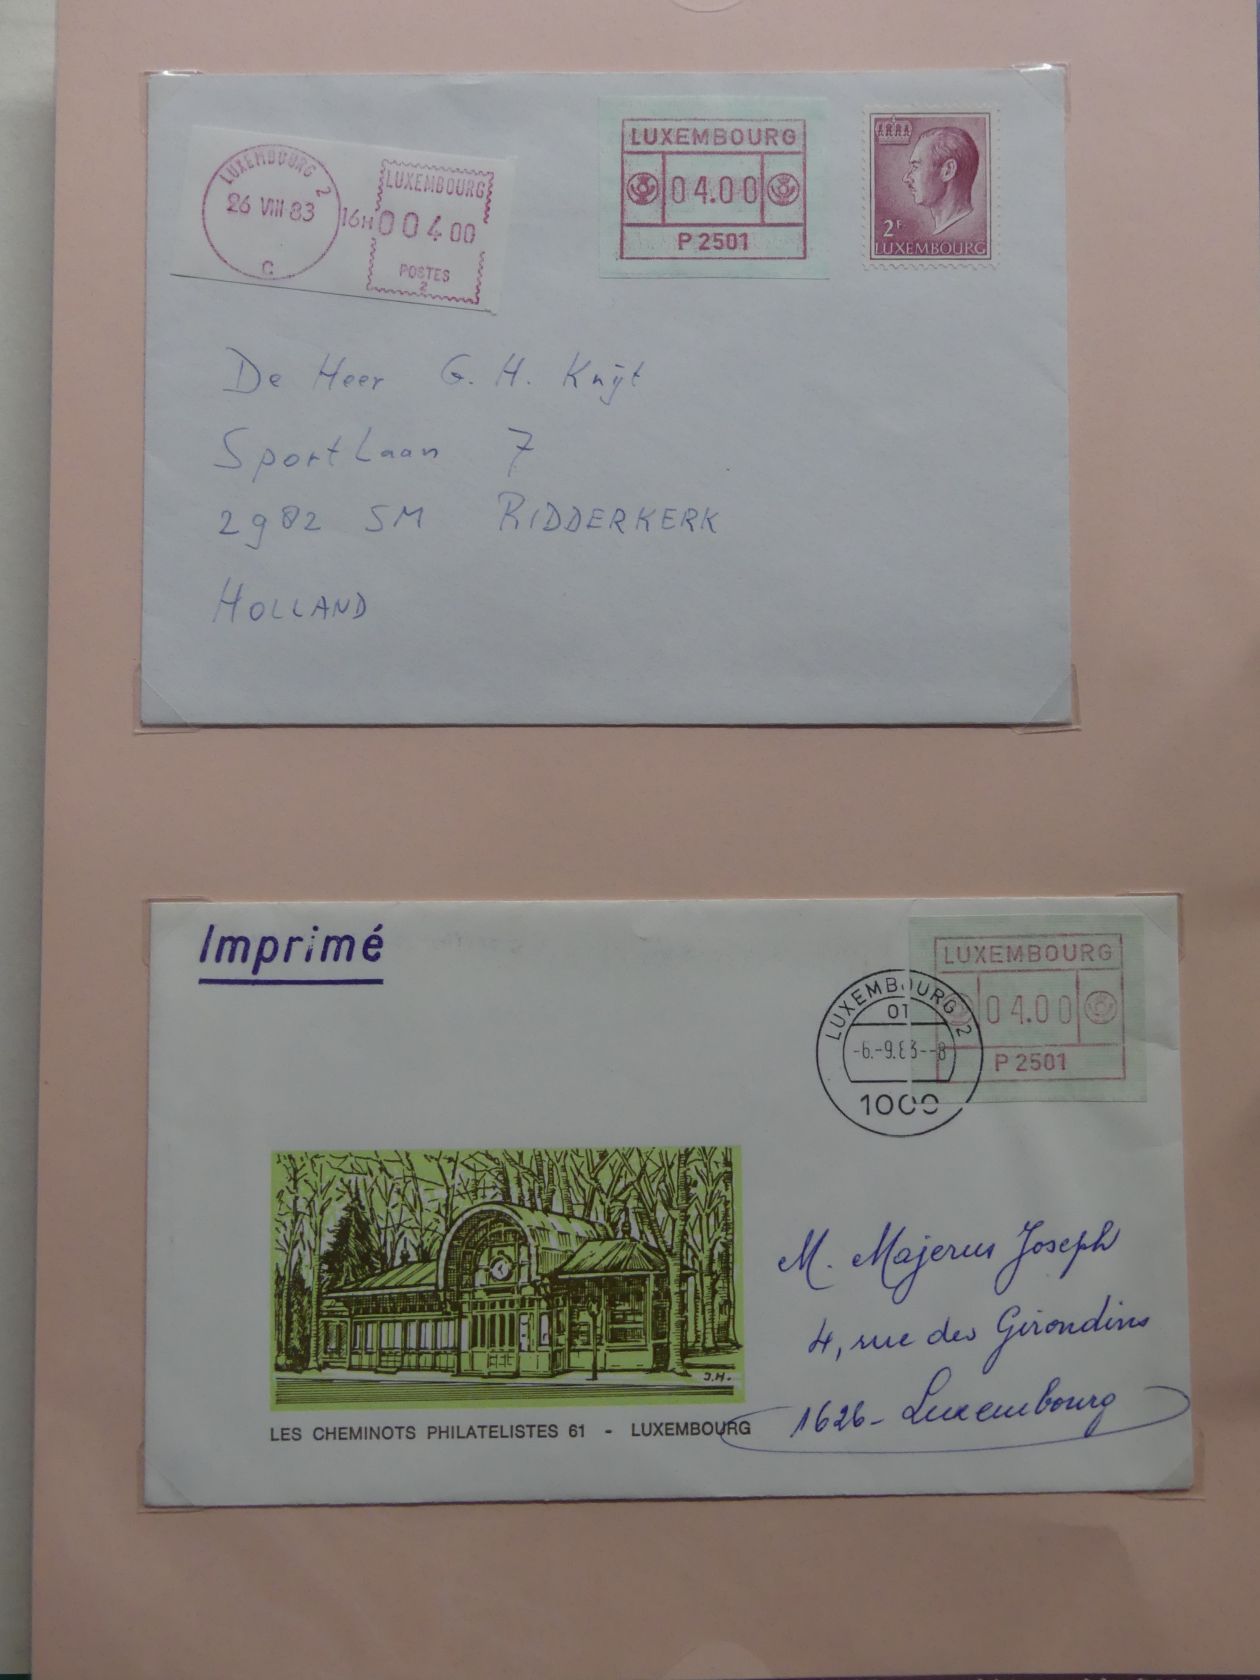 LUXEMBOURG 2
26 VIII 83
16H
C
LUXEMBOURG
00400
POSTES
2
LUXEMBOURG
04.00
P 2501
2F
LUXEMBOURG
De Heer G. H. Knijt
Sportlaan 7
2982 SM RIDDERKERK
HOLLAND
Imprimé
LUXEMBOURG 2
01
-6.-9.83--8
1000
LUXEMBOURG
04.00
P 2501
J.H.
LES CHEMINOTS PHILATELISTES 61 - LUXEMBOURG
M. Majerus Joseph
4, rue des Girondins
1626 - Luxembourg